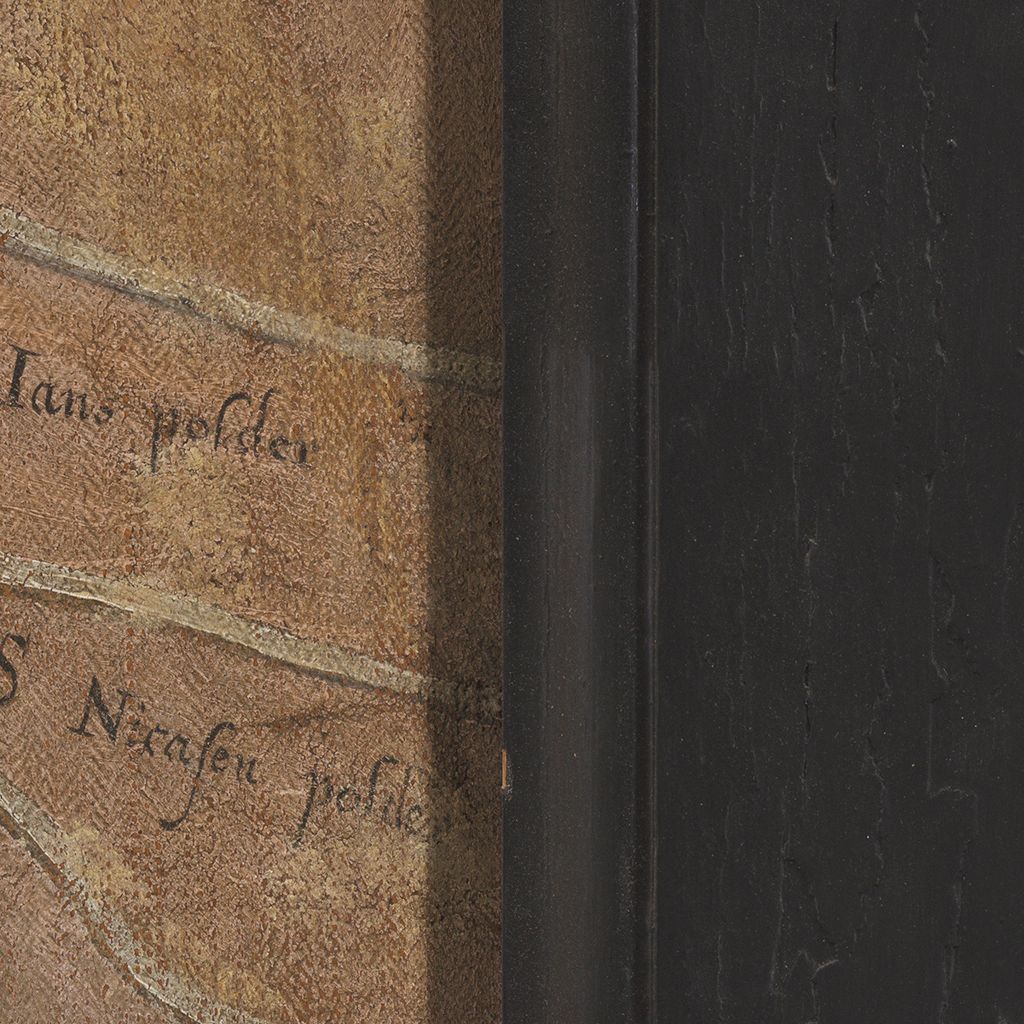 Ians polder
S Nixasen polder